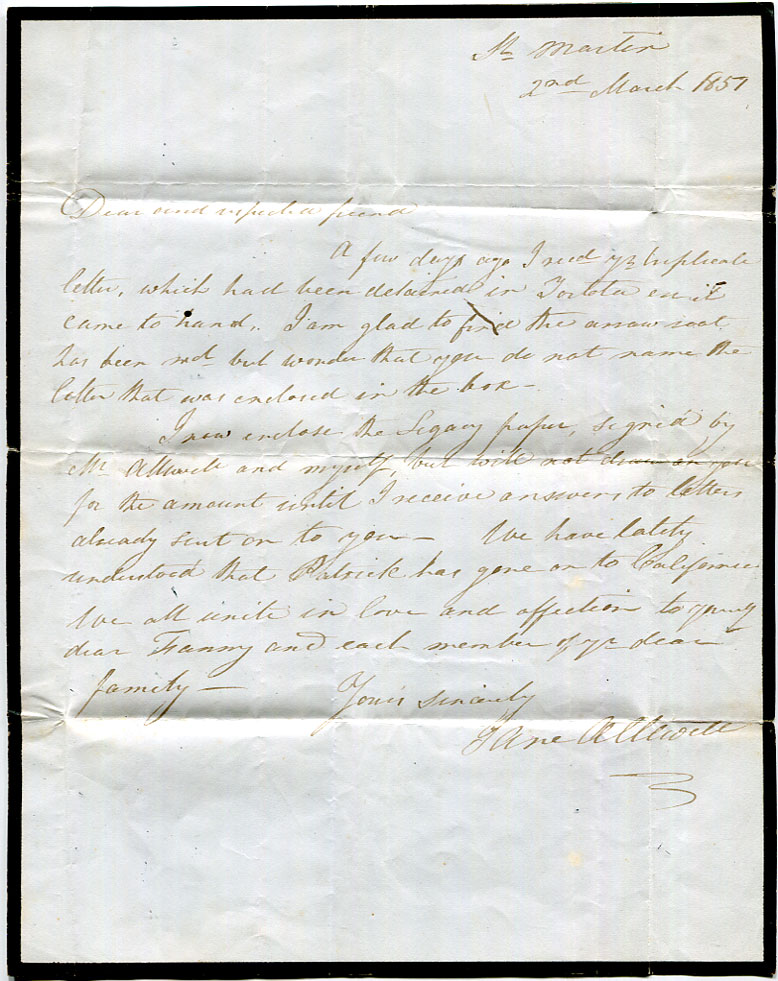 St Martin
2nd March 1851
Dear and respected friend
A few days ago I recd yr triplicate
letter, which had been detained in Tortola en it
came to hand. I am glad to find the arrow root
has been recd but wonder that you do not name the
letter that was enclosed in the box –
I now enclose the Legacy paper, signed by
Mr Attwell and myself, but will not draw on you
for the amount until I receive answers to letters
already sent on to you – We have lately
understood that Patrick has gone on to California
We all unite in love and affection to
dear Fanny and each member of yr dear
family – Yours sincerely
Jane Attwell